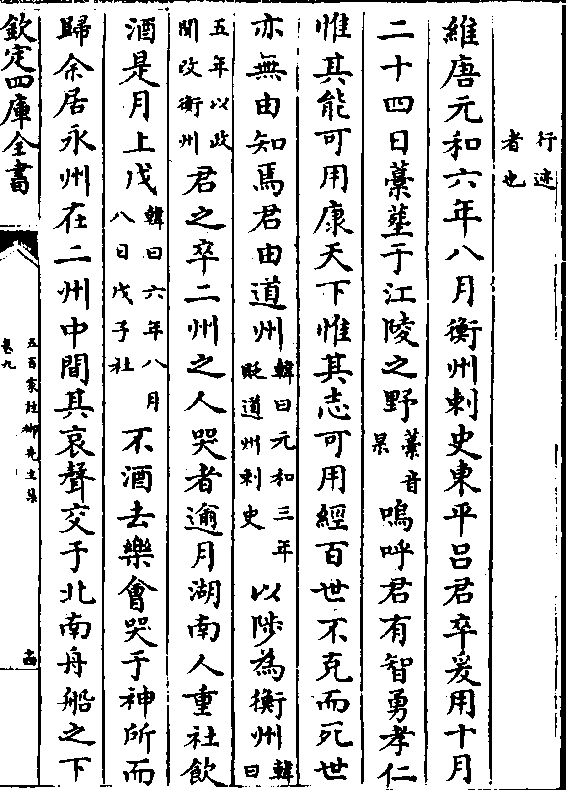 行迹者也
維唐元和六年八月衡州刺史東平呂君卒爰用十月
二十四日藁塟于江陵之野藁音杲嗚呼君有智勇孝仁
惟其能可用康天下惟其志可用經百世不克而死世
亦無由知焉君由道州韓曰元和三年貶道州刺史以陟為衡州韓曰
五年以政聞改衡州君之卒二州之人哭者逾月湖南人重社飲
酒是月上戊韓曰六年八月八日戊子社不酒去樂會哭于神所而
歸余居永州在二州中間其哀聲交于北南舟船之下
欽定四庫全書
五百家註栁先生集
卷九
十四